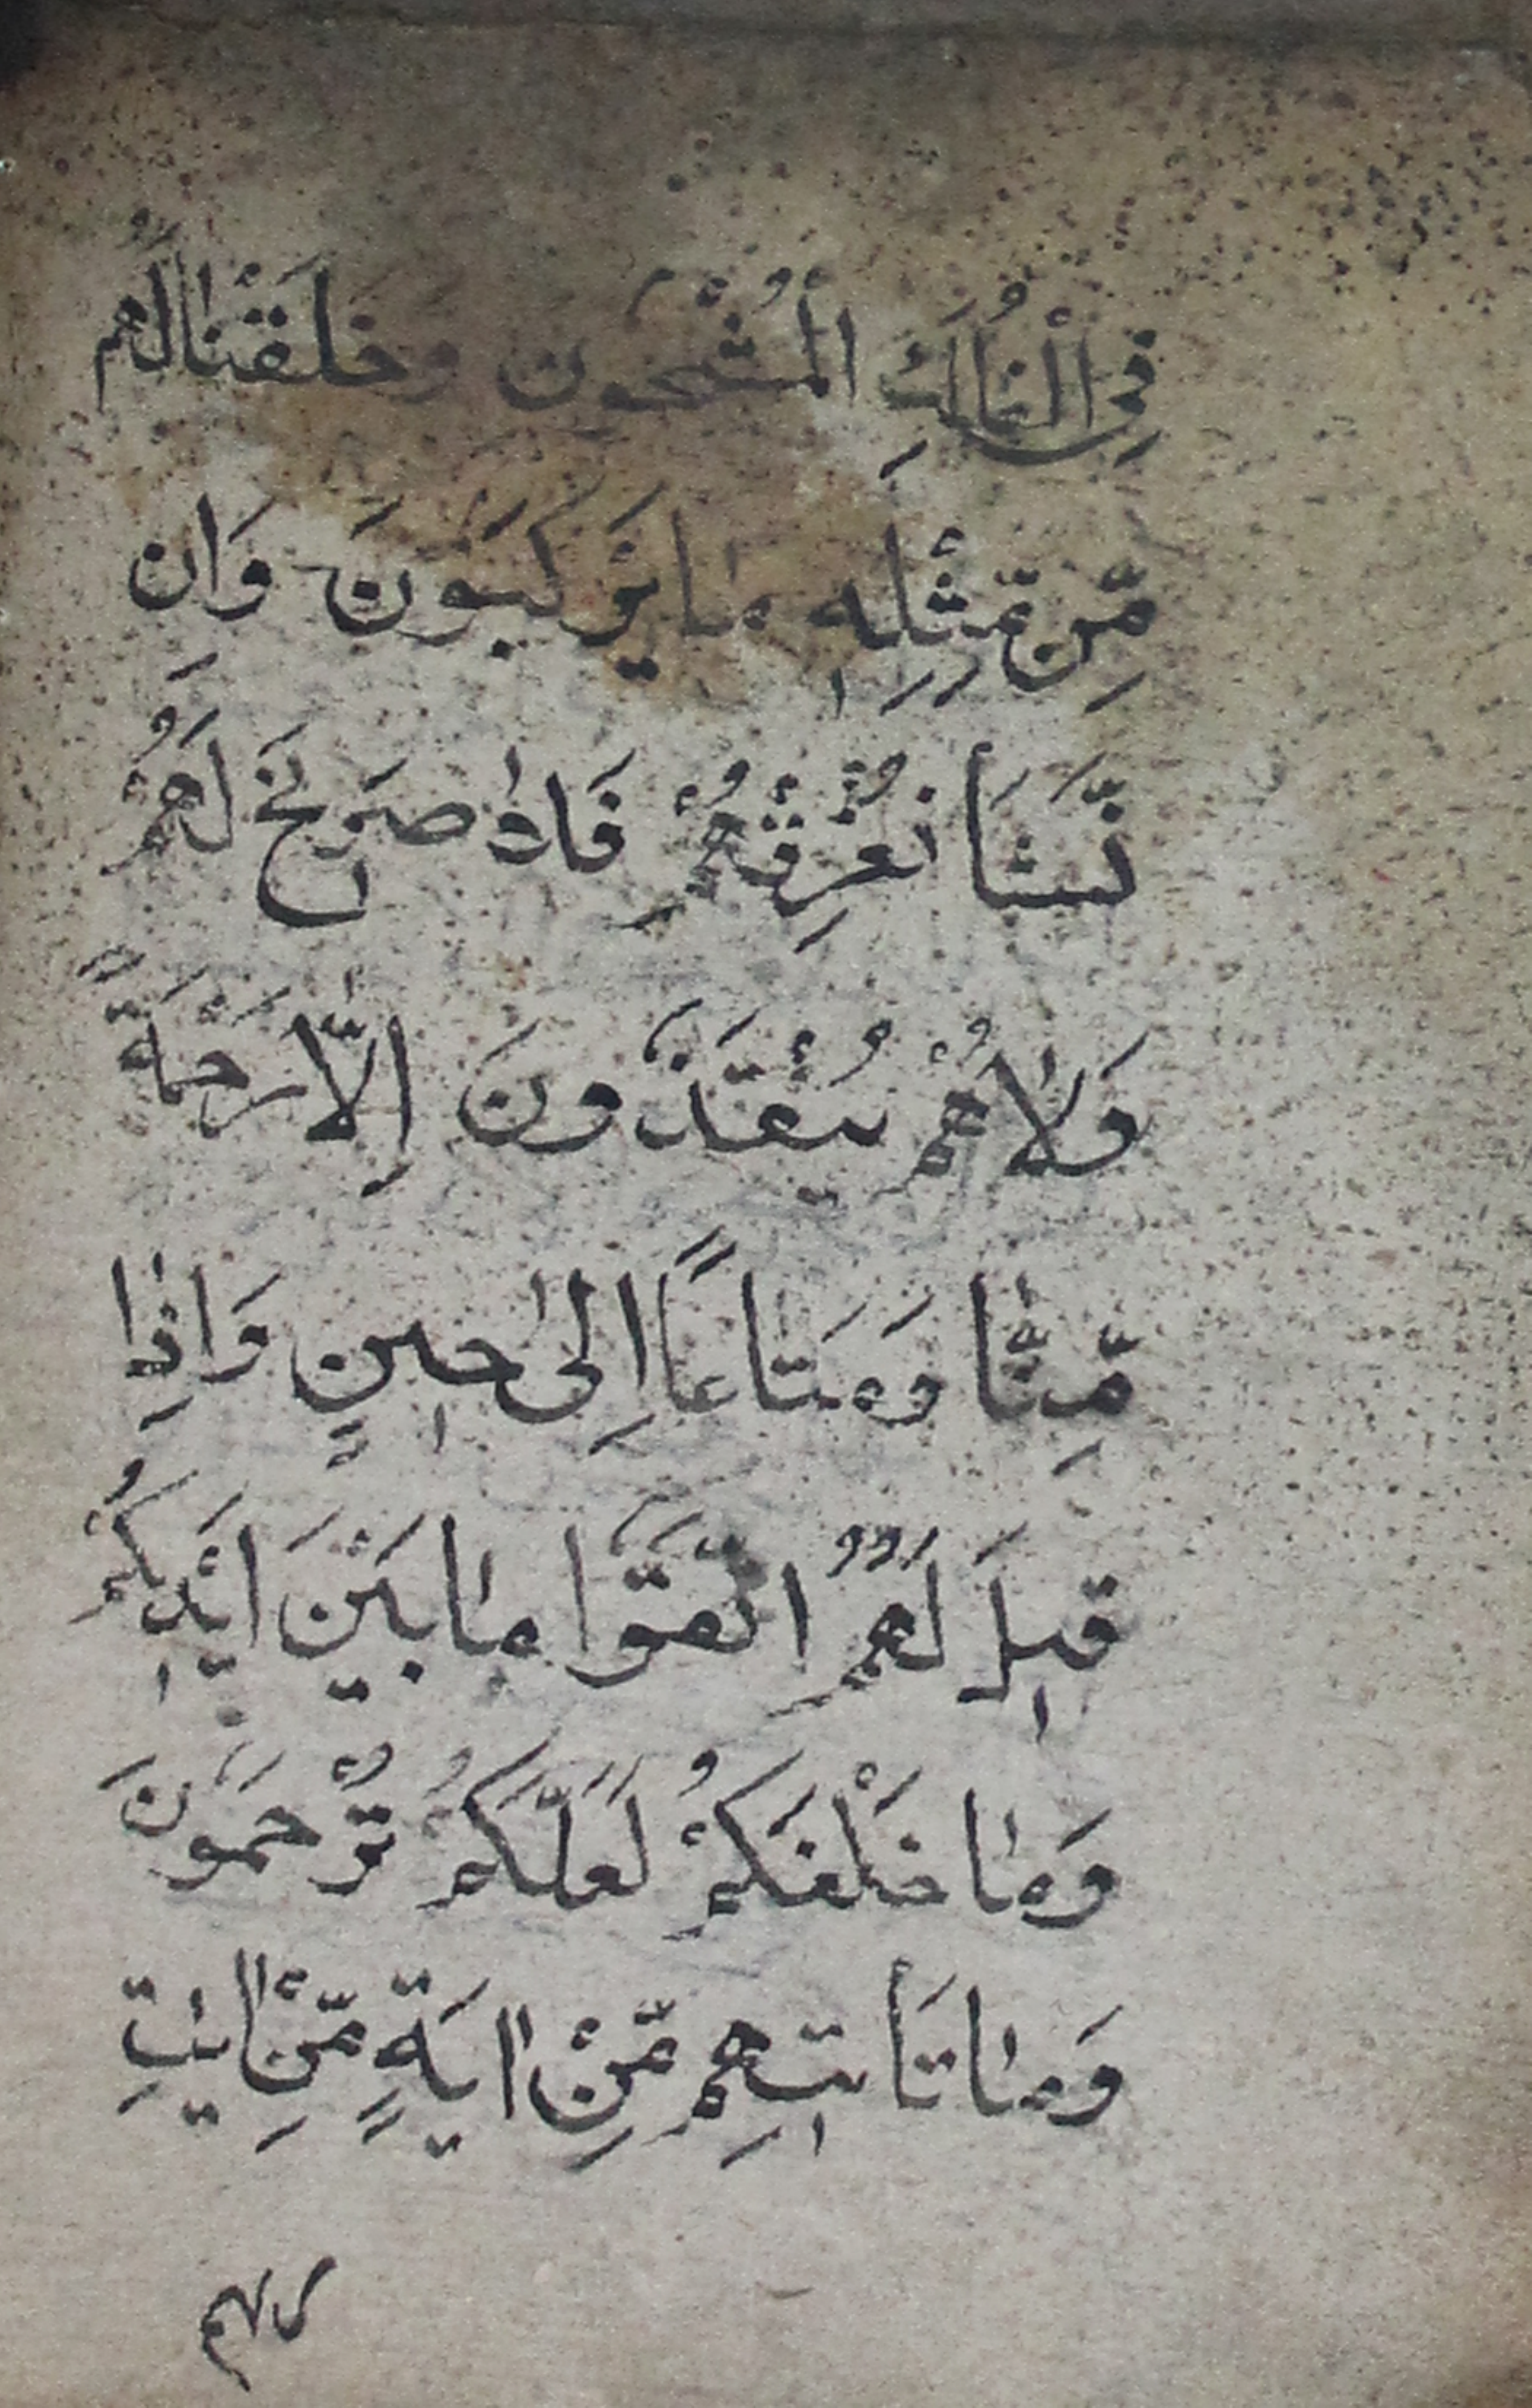 فِي الْفُلْكِ الْمَشْحُون وخلَقْنٰا لَهُم
مِّن مِّثْلِهٖ مٰا يَرْكَبُونَ وَان
نَّشَأ نُغْرِقْهُمْ فَلاٰ صَرِيخَ لَهُمْ
وَلاٰ هُمْ يُنْقَذُونَ اِلّاٰ رَحْمَةً
مِّنّٰا وَمَتٰاعاً اِلىٰ حٖينٍ وَاِذٰا
قٖيلَ لَهُمُ اتَّقَوُا مٰا بَيْنَ اَيْدٖيكُمْ
وَمٰا خَلْفَكُمْ لَعَلَّكُمْ تُرْحَمُونَ
وَمٰا تَأتٖيهِم مِّنْ اٰيَةٍ مِّنْ اٰيٰتِ
رَبِّهِم